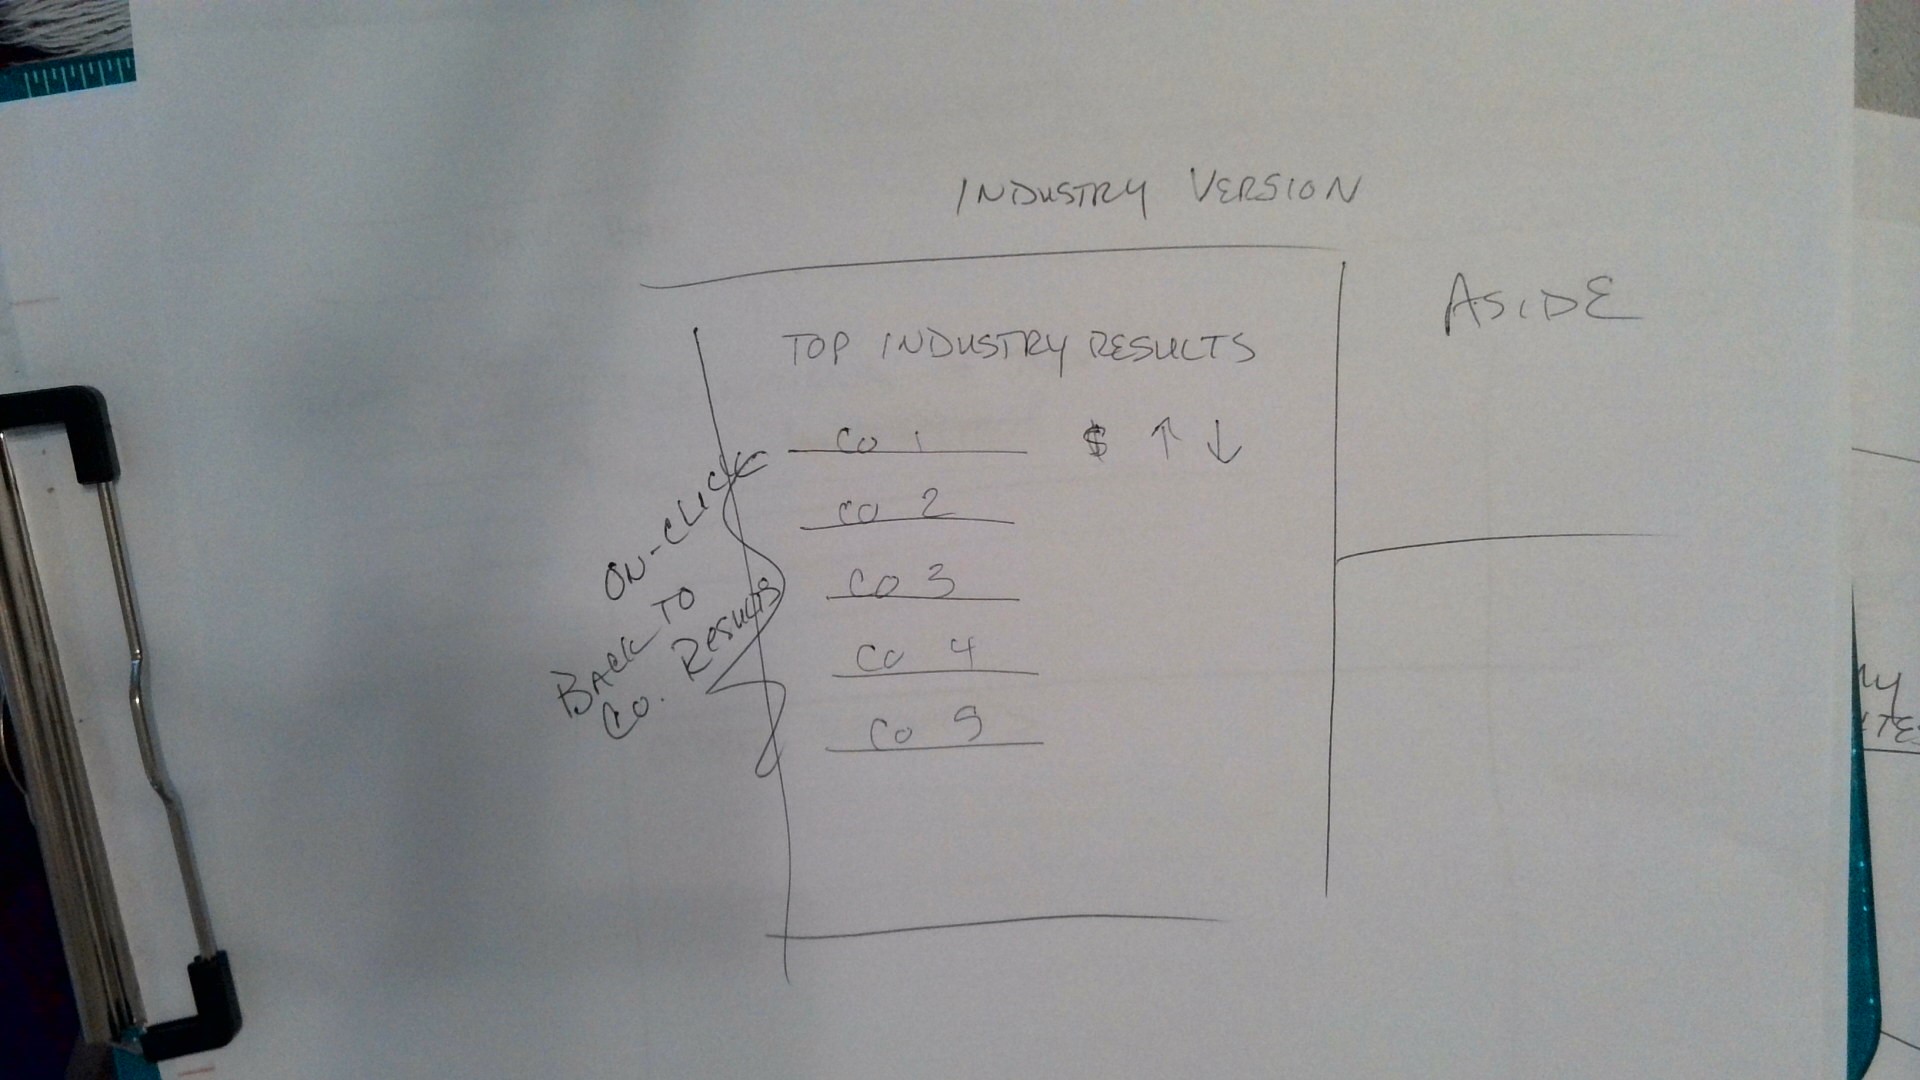 INDUSTRY VERSION
ASIDE
TOP INDUSTRY RESULTS
CO 1 $ ↑ ↓
CO 2
CO 3
CO 4
CO 5
ON-CLICK
BACK TO
CO. RESULTS